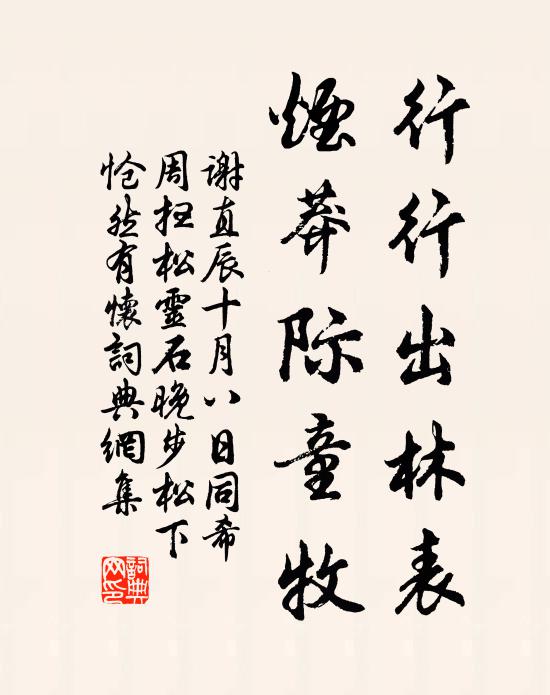 行行出林表
煙莽际童牧
谢直辰十月八日同希
周扫松靈石晚步松下
怆然有懷詞典網集
詞典网印